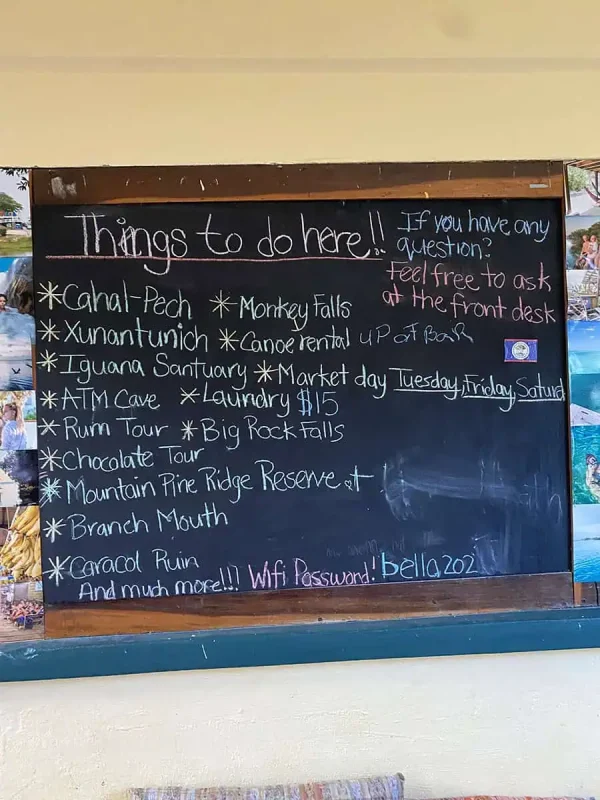 Things to do here!!
If you have any
question?
Feel free to ask
at the front desk
*Cahal-Pech *Monkey Falls
*Xunantunich *Canoe rental
*Iguana Santuary *Market day Tuesday, Friday, Saturd
*ATM Cave *Laundry $15
*Rum Tour *Big Rock Falls
*Chocolate Tour
*Mountain Pine Ridge Reserve
*Branch Mouth
*Caracol Ruin
And much more!!! Wifi Password! bella202